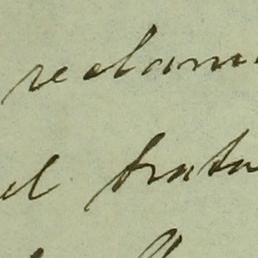 reclam
el trata